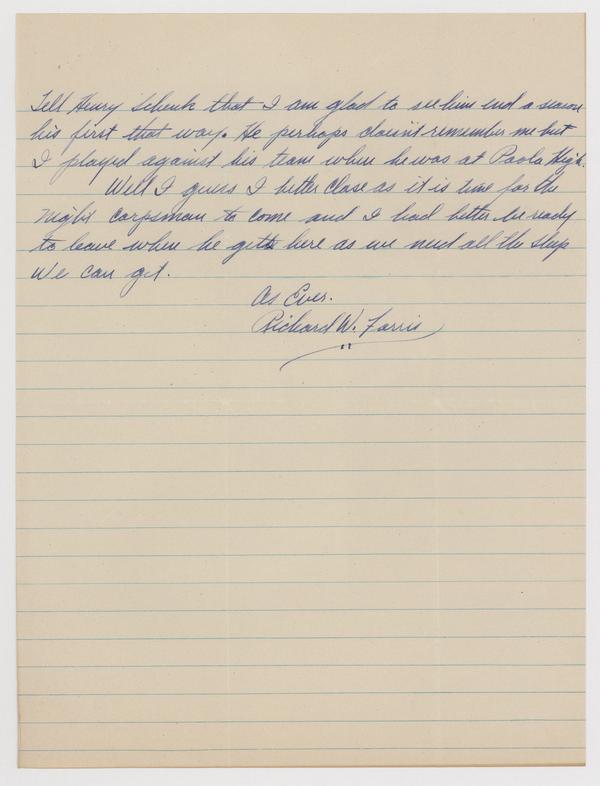 Tell Henry Schenk that I am glad to see him end a season
his first that way. He perhaps doesn't remember me but
I played against his team when he was at Paola High.
Well I guess I better close as it is time for the
night corpsman to come and I had better be ready
to leave when he gets here as we need all the sleep
we can get.
As Ever.
Richard W. Farris